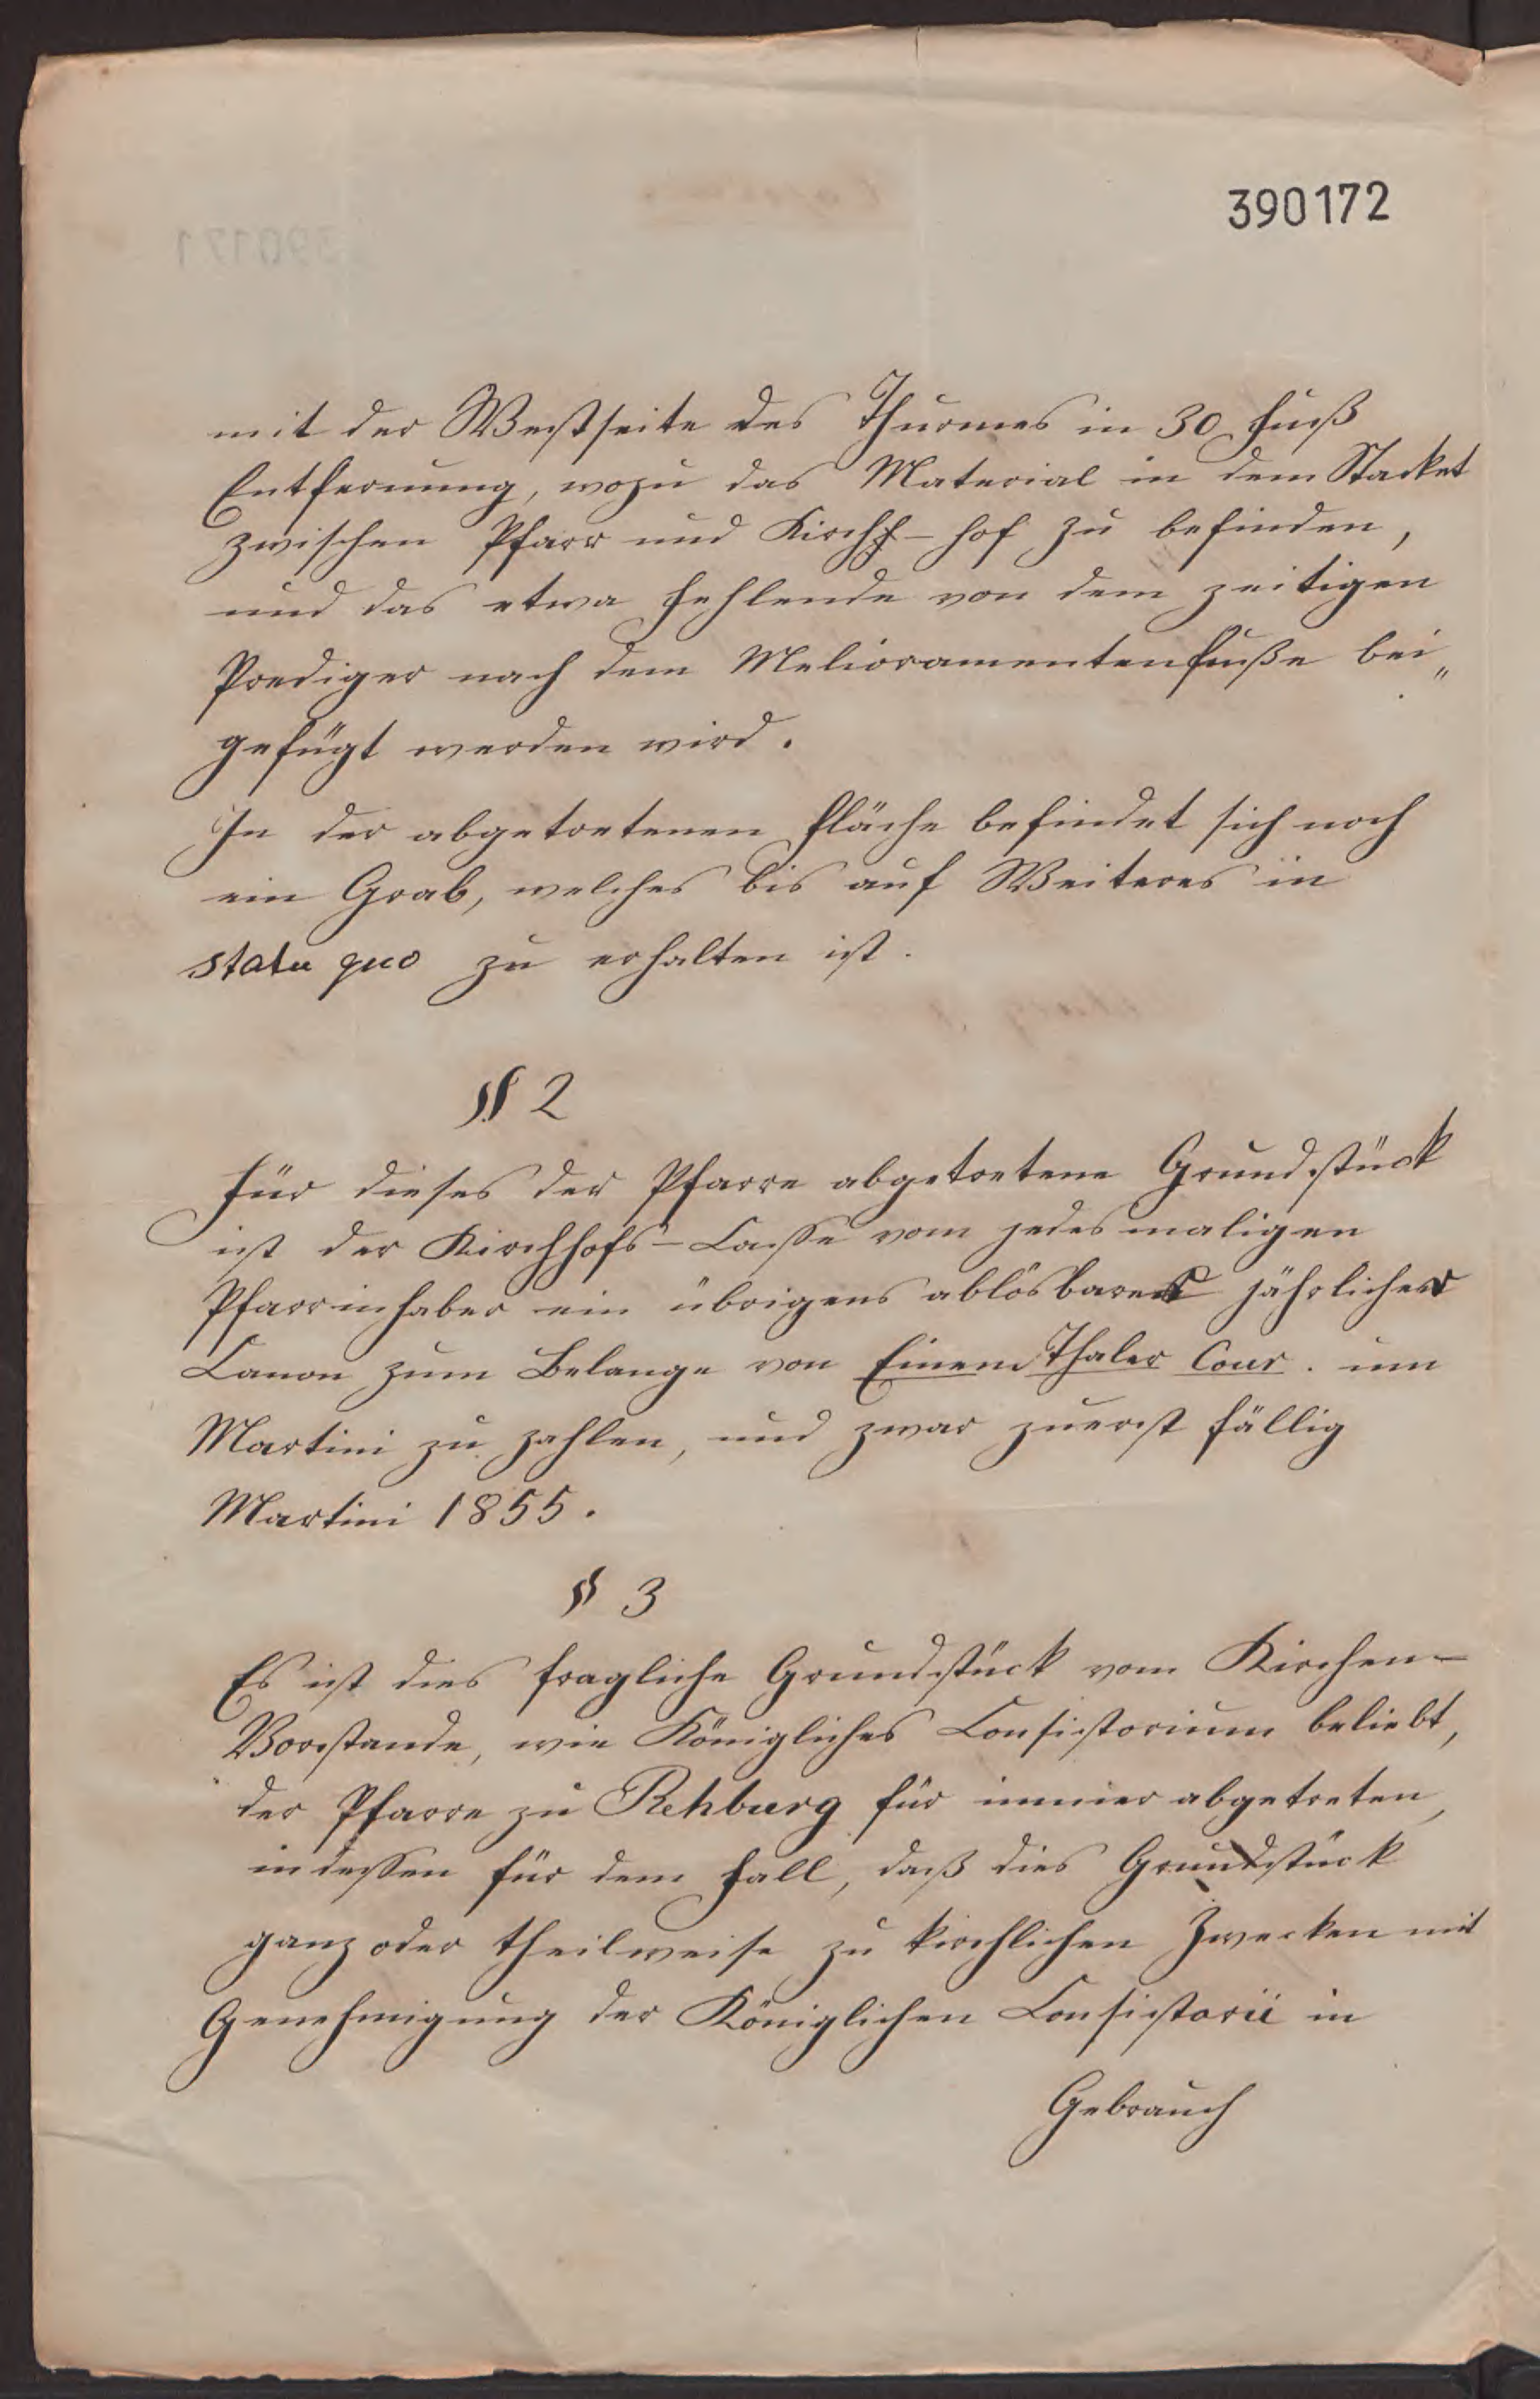 390172
mit der Westseite des Thurmes in 30 Fuß
Entfernung, wozu das Material in dem Stacket
zwischen Pfarr und Kirch-hof zu befinden,
und das etwa Fehlende von dem zeitigen
Prediger nach dem Melioramentenfuße bei„
gefügt werden wird.
In der abgetretenen Fläche befindet sich noch
ein Grab, welches bis auf Weiteres in
statu quo zu erhalten ist.
§ 2
Für dieses der Pfarre abgetretene Grundstück
ist der Kirchhofs-Casse vom jedesmaligen
Pfarrinhaber ein übrigens ablösbarer jährlicher
Canon zum Belange von Einem Thaler Cour. um
Martini zu zahlen, und zwar zuerst fällig
Martini 1855.
§ 3
Es ist dies fragliche Grundstück vom Kirchen-
Vorstande, wie Königliches Consistorium beliebt,
der Pfarre zu Rehburg für immer abgetreten,
indessen für dem Fall, daß dies Grundstück
ganz oder theilweise zu kirchlichen Zwecken mit
Genehmigung der Königlichen Consistorii in
Gebrauch